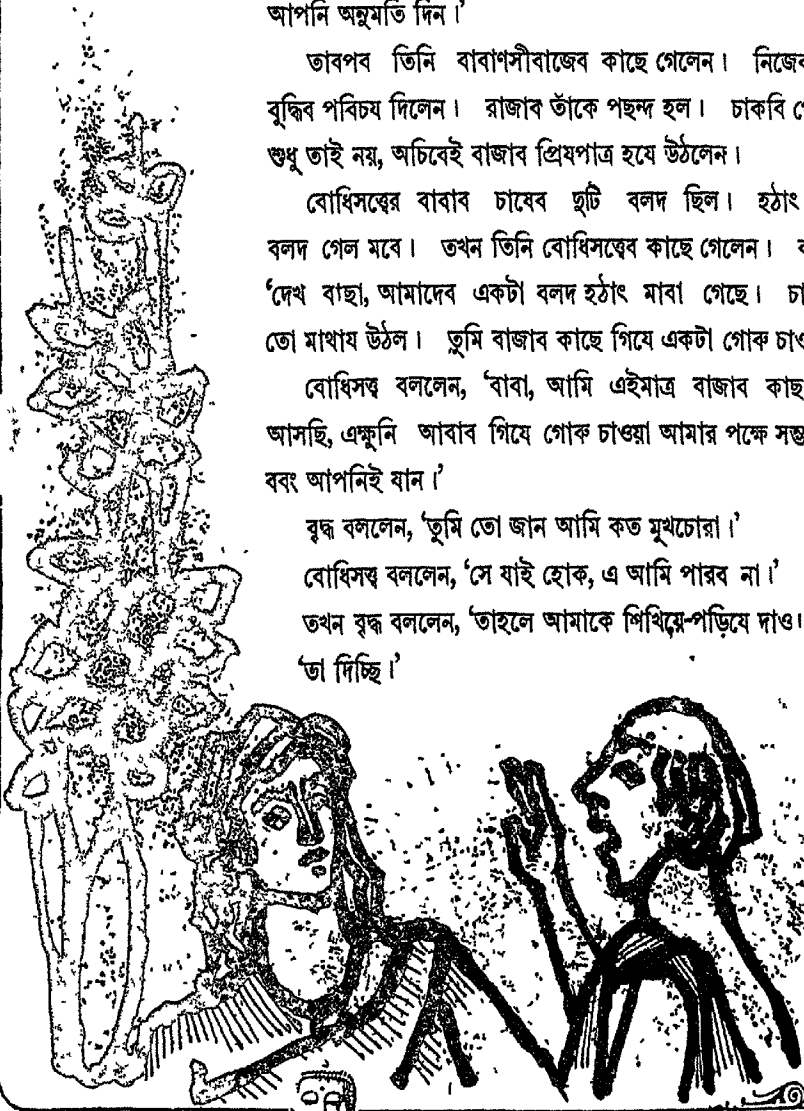 আপনি অনুমতি দিন।’
তাবপব তিনি বাবাণসীবাজেব কাছে গেলেন। নিজেব
বুদ্ধিব পবিচয দিলেন। রাজাব তাঁকে পছন্দ হল। চাকবি
শুধু তাই নয়, অচিবেই বাজাব প্রিযপাত্র হযে উঠলেন।
বোধিসত্ত্বের বাবাব চাষেব দুটি বলদ ছিল। হঠাৎ
বলদ গেল মবে। তখন তিনি বোধিসত্ত্বেব কাছে গেলেন।
‘দেখ বাছা, আমাদেব একটা বলদ হঠাৎ মাবা গেছে।
তো মাথায উঠল। তুমি বাজাব কাছে গিযে একটা গোক
বোধিসত্ত্ব বললেন, ‘বাবা, আমি এইমাত্র বাজাব কাছ
আসছি, এক্ষুনি আবাব গিযে গোক চাওয়া আমার পক্ষে
ববং আপনিই যান।’
বৃদ্ধ বললেন, ‘তুমি তো জান আমি কত মুখচোরা।’
বোধিসত্ত্ব বললেন, ‘সে যাই হোক, এ আমি পারব না।’
তখন বৃদ্ধ বললেন, ‘তাহলে আমাকে শিখিয়ে-পড়িযে দাও।
‘তা দিচ্ছি।’